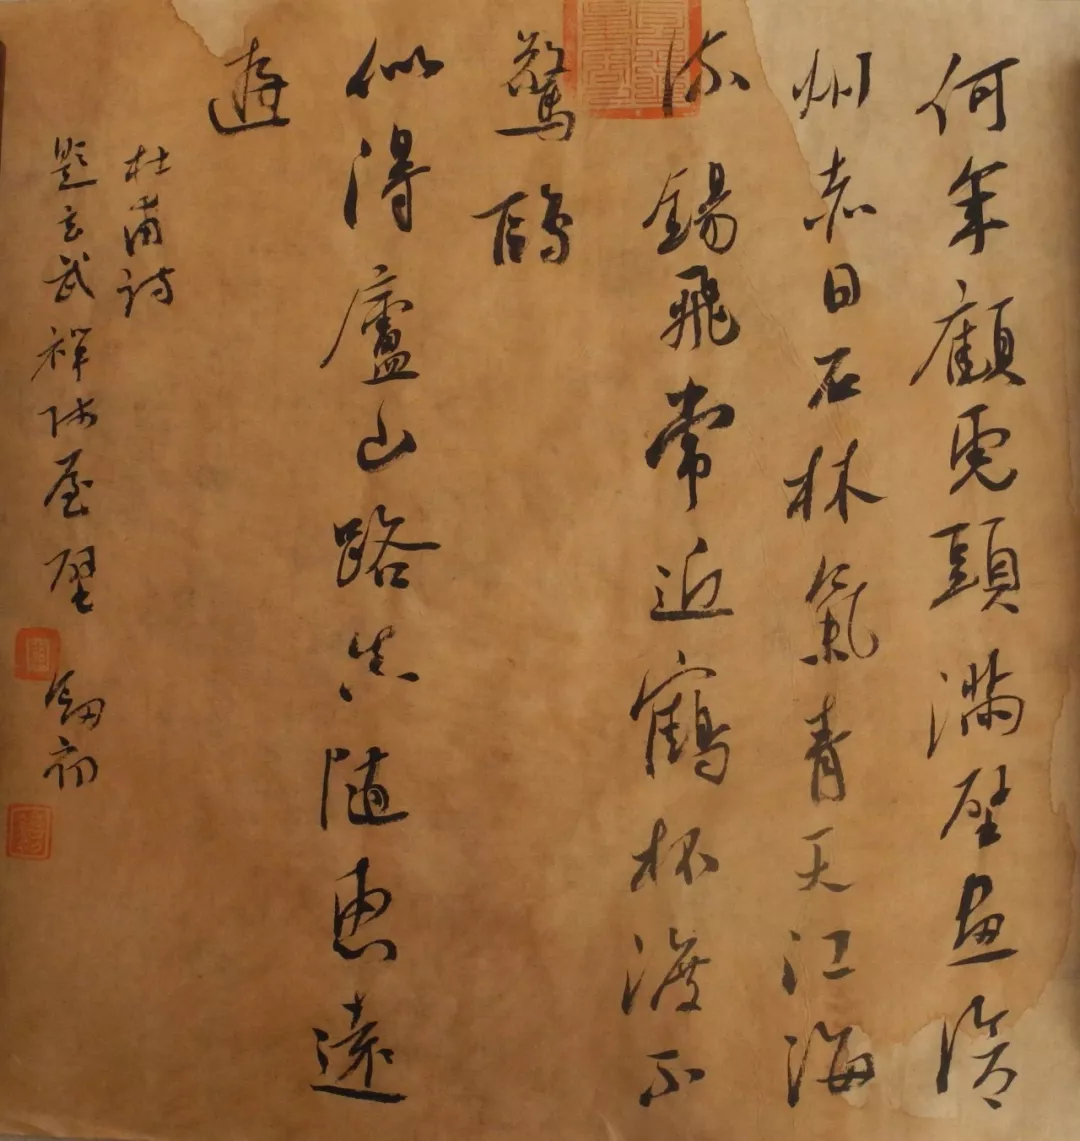 何年顧虎頭滿壁畫滄
州赤日石林氣青天江海
流錫飛常近鶴杯渡不
驚鷗
似得廬山路真隨惠遠
遊
杜甫詩
題玄武禪師屋壁 初